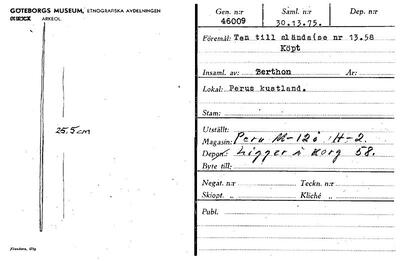 GÖTEBORGS MUSEUM, ETNOGRAFISKA AVDELNINGEN
ARKEOL.
25,5 cm
Gen. n:r 46009
Saml. n:r 30.13.75.
Dep. n:r
Föremål: Ten till sländaise nr 13.58
Köpt
Insaml. av: Berthon År:
Lokal: Perus kustland.
Stam:
Utställt:
Magasin: Peru M-120 H-2.
Depon: Ligger i korg 58.
Byte till:
Negat. n:r Teckn. n:r
Skiopt. n:r Kliché n:r
Publ.